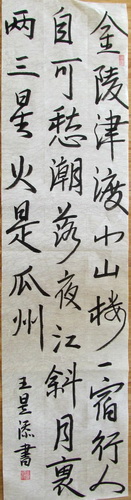 金陵津渡小山楼一宿行人
自可愁潮落夜江斜月裏
两三星火是瓜州
王昱添書